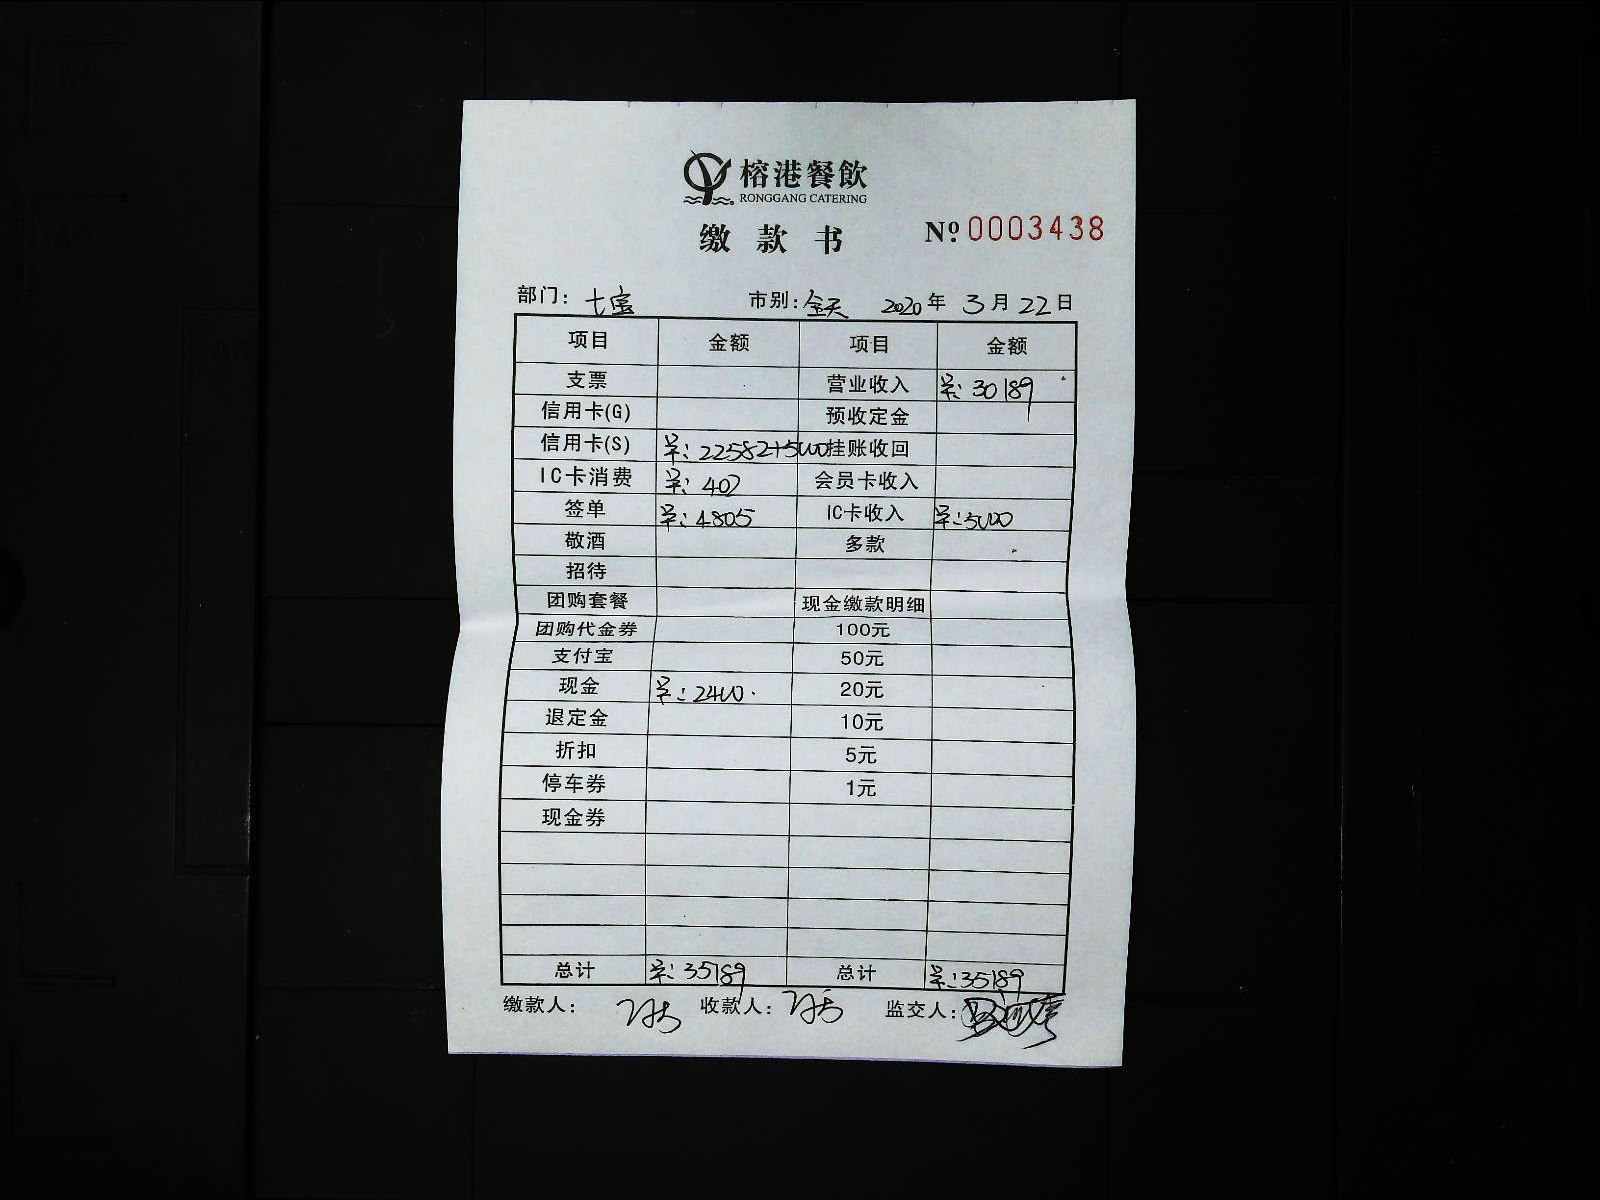 榕港餐飲
RONGGANG CATERING
缴款书 Nº 0003438
部门: 七宝 市别: 全天 2020年3月22日
项目 金额 项目 金额
支票 营业收入 ¥: 30189
信用卡(G) 预收定金
信用卡(S) ¥: 22582+5000 挂账收回
IC卡消费 ¥: 402 会员卡收入
签单 ¥: 4805 IC卡收入 ¥: 5000
敬酒 多款
招待
团购套餐 现金缴款明细
团购代金券 100元
支付宝 50元
现金 ¥: 2400. 20元
退定金 10元
折扣 5元
停车券 1元
现金券
总计 ¥: 35189 总计 ¥: 35189
缴款人: 收款人: 监交人: